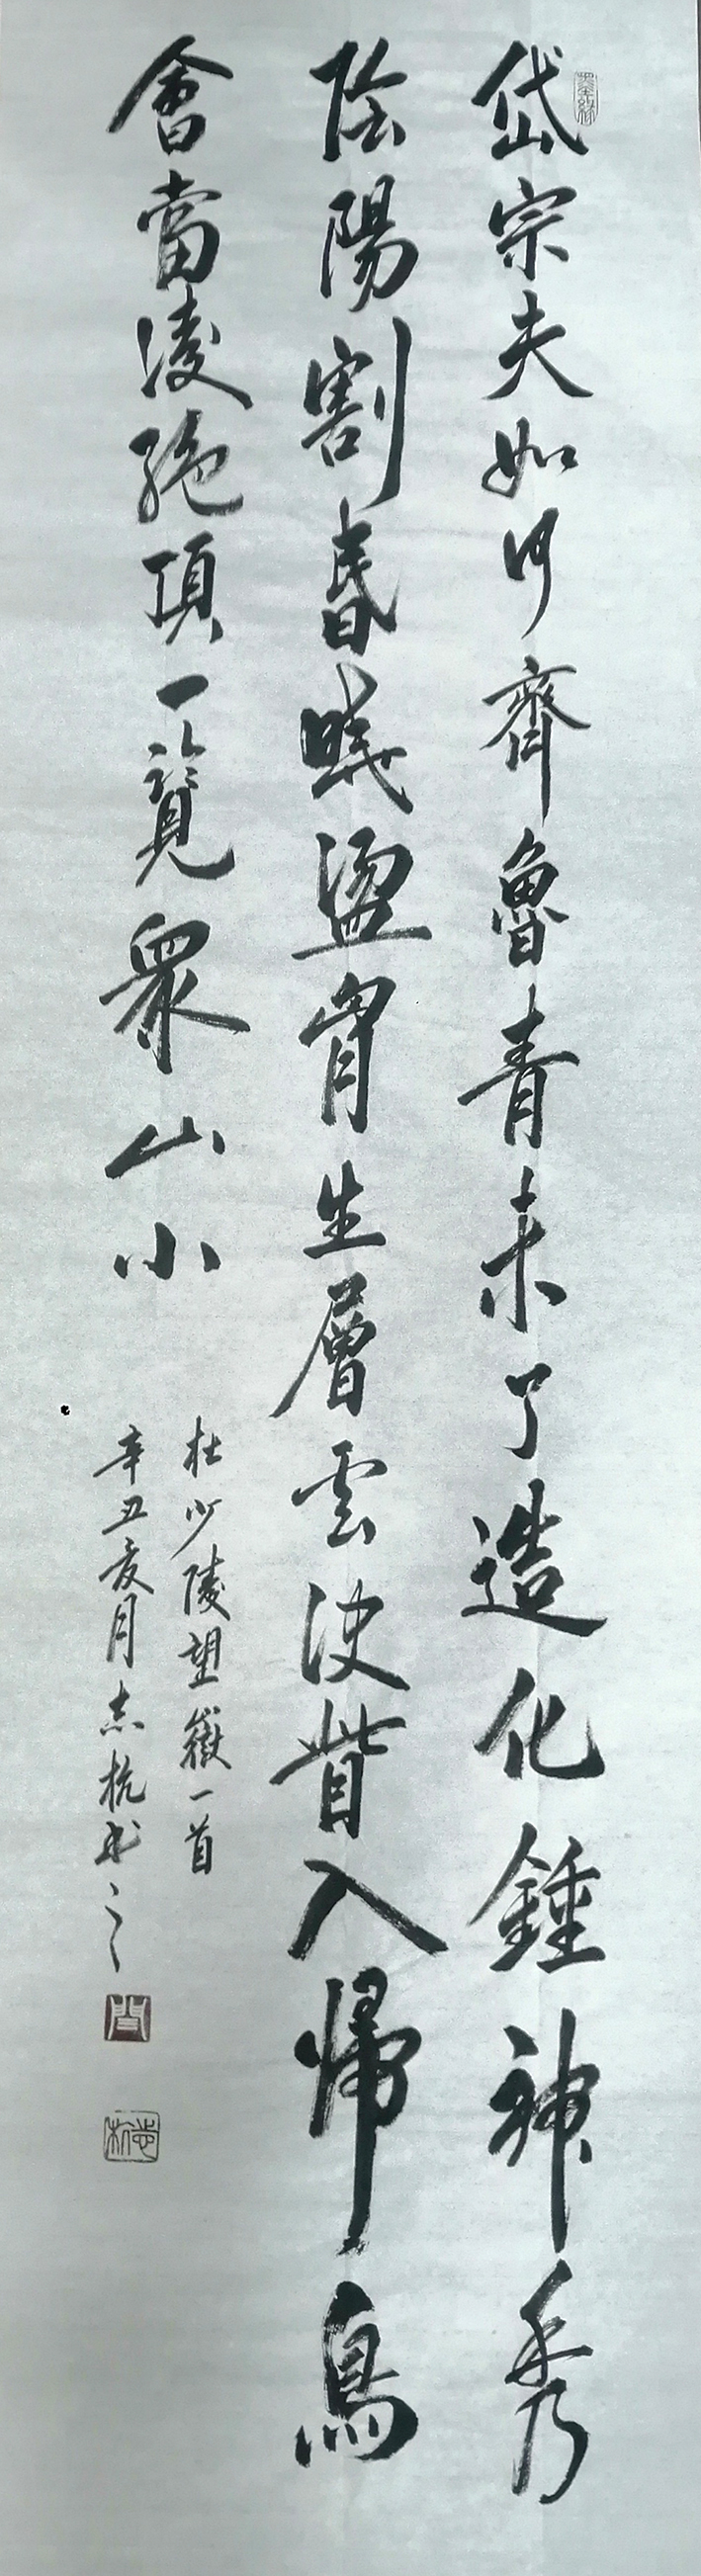 岱宗夫如何齊魯青未了造化鍾神秀
陰陽割昏曉盪胷生層雲決眥入歸鳥
會當凌絶頂一覽衆山小
杜少陵望嶽一首
辛丑夏月志杭书之